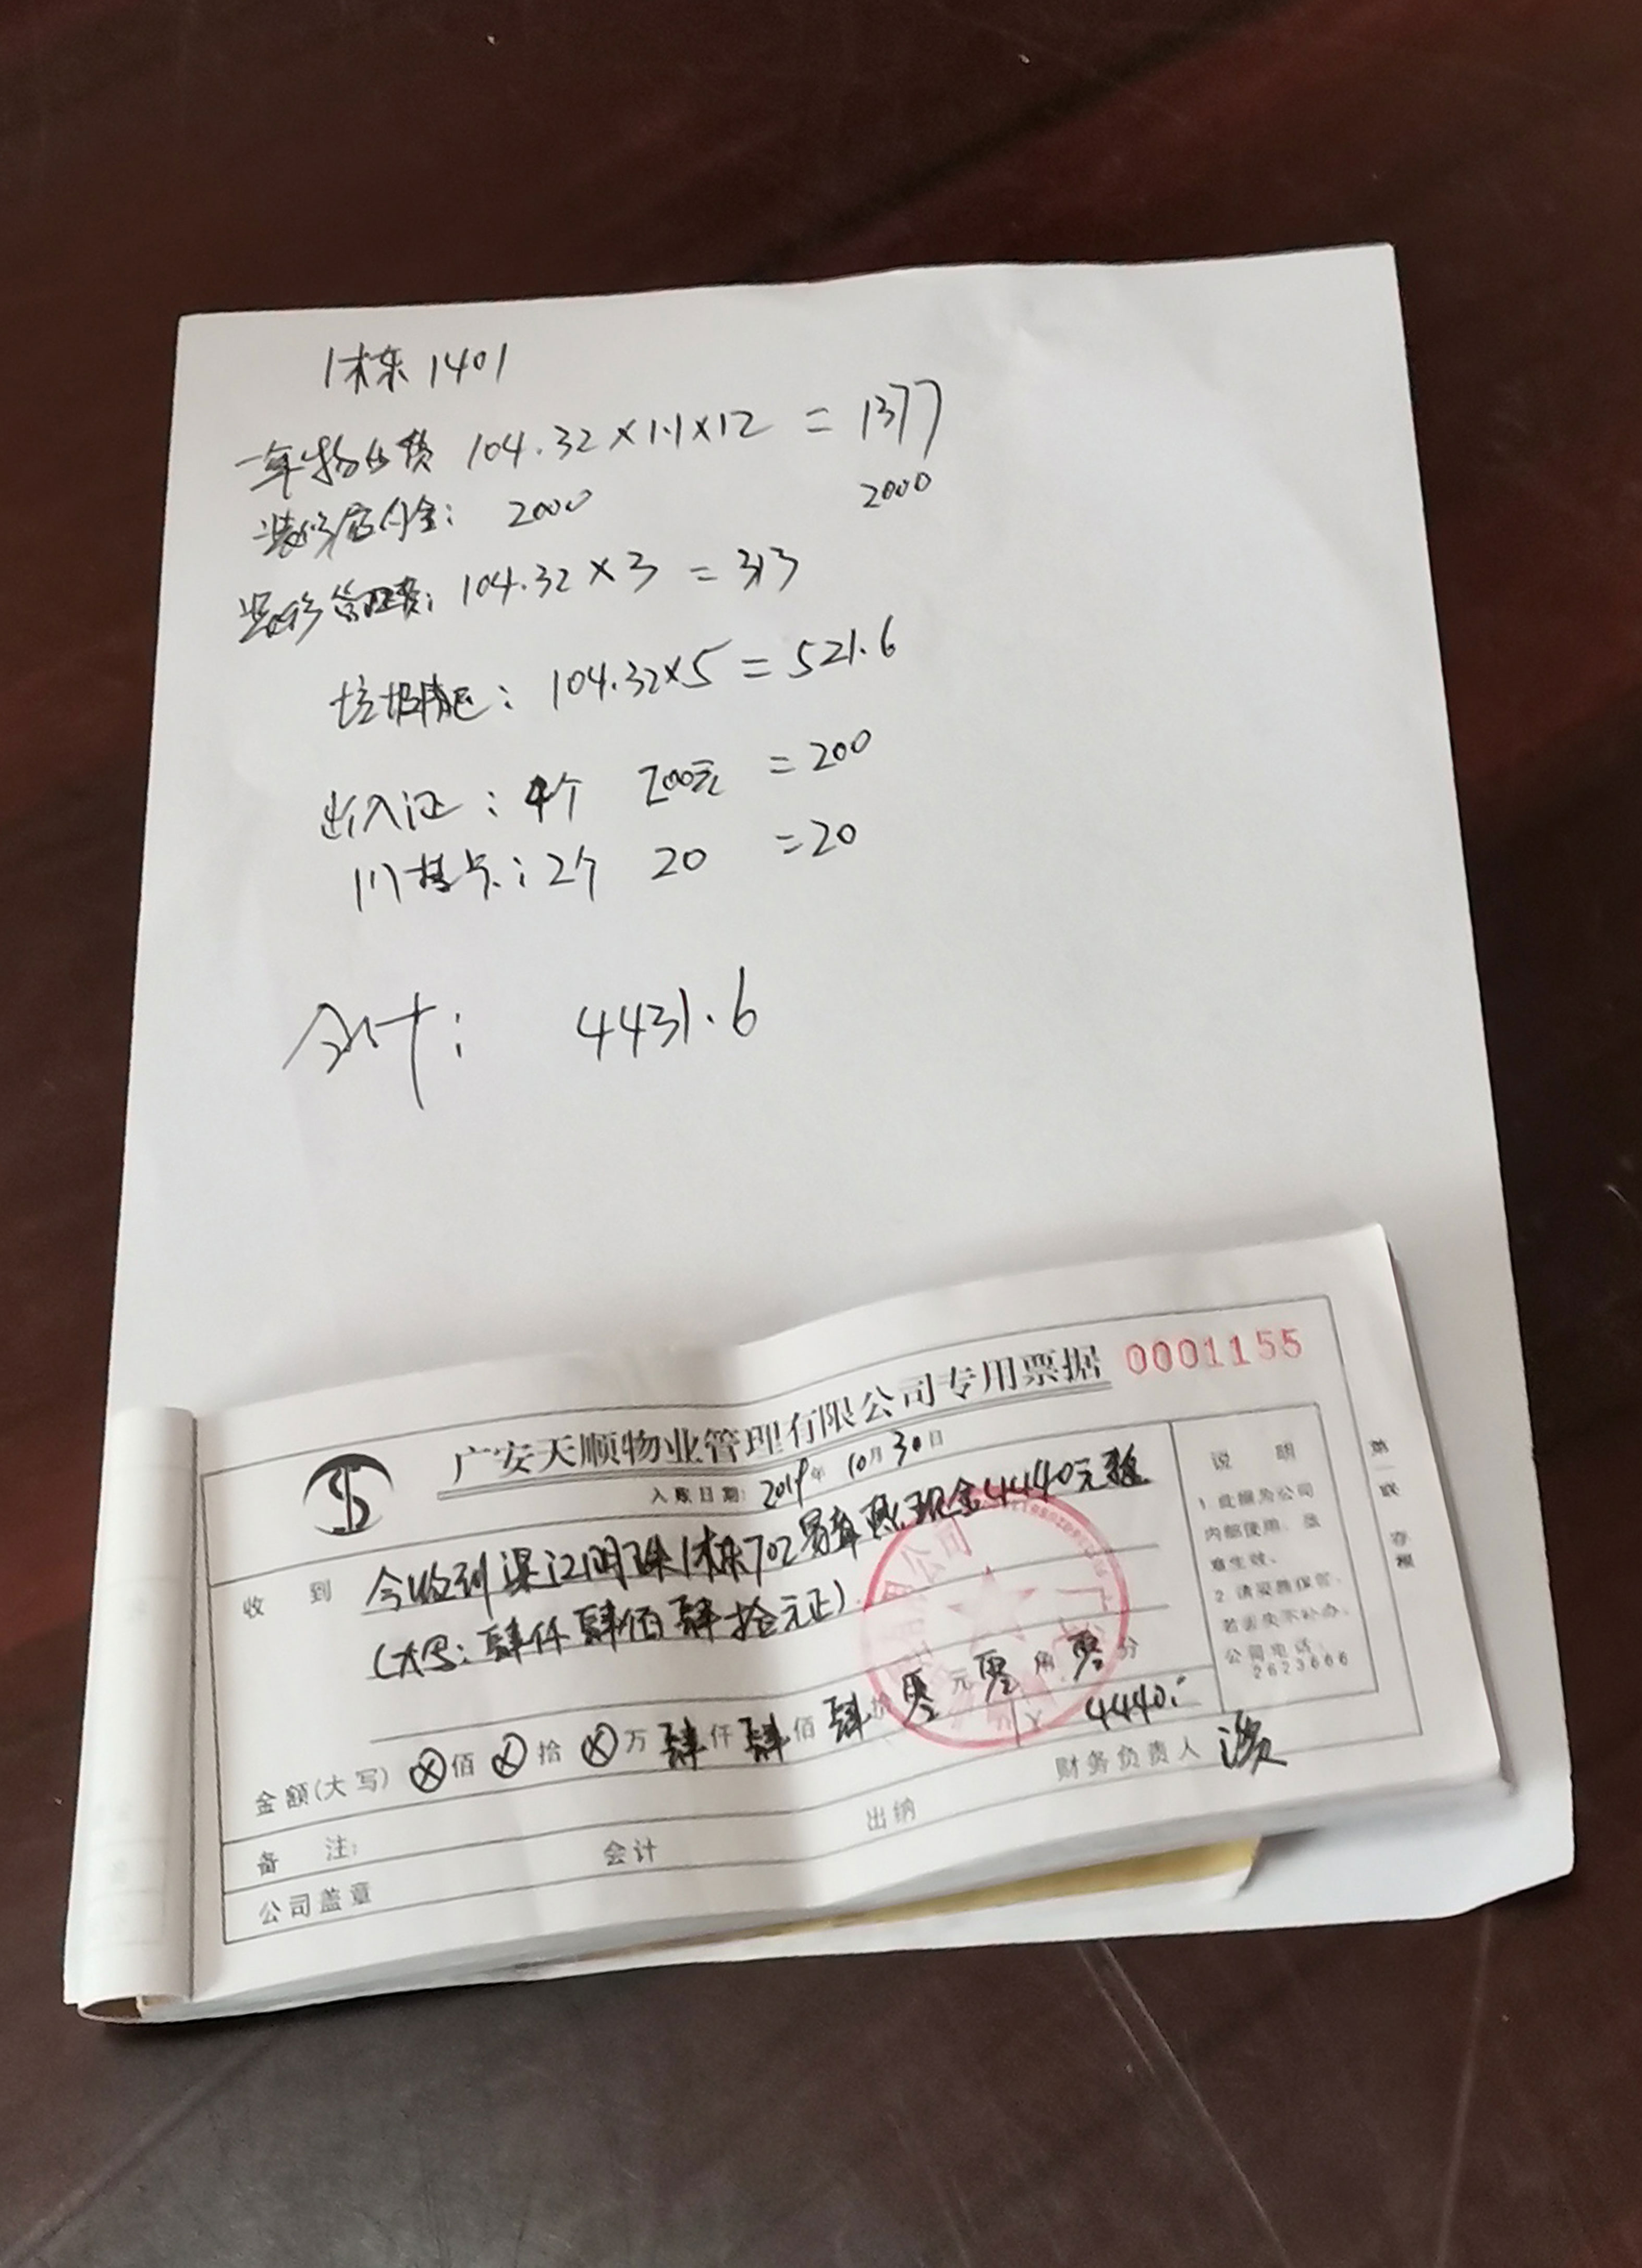 1栋1401
一年物业费 104.32×1.1×12 = 1377
装修店付金: 2000 2000
装修管理费: 104.32×3 = 313
垃圾清运: 104.32×5 = 521.6
出入证: 4个 200元 =200
门禁卡: 2个 20 =20
合计: 4431.6
广安天顺物业管理有限公司专用票据 0001155
入账日期: 2019年 10月30日
收 到 今收到渠江明珠1栋702 现金4440元整
(大写: 肆仟肆佰肆拾元正)
金额(大写) ⊗佰⊗拾⊗万肆仟肆佰肆拾零元零角零分 ¥ 4440
备 注: 会计 出纳 财务负责人
公司盖章
说 明
1 此据为公司
内部使用、盖
章生效。
2 请妥善保管,
若丢失不补办。
公司电话:
2623666
第一联 存根